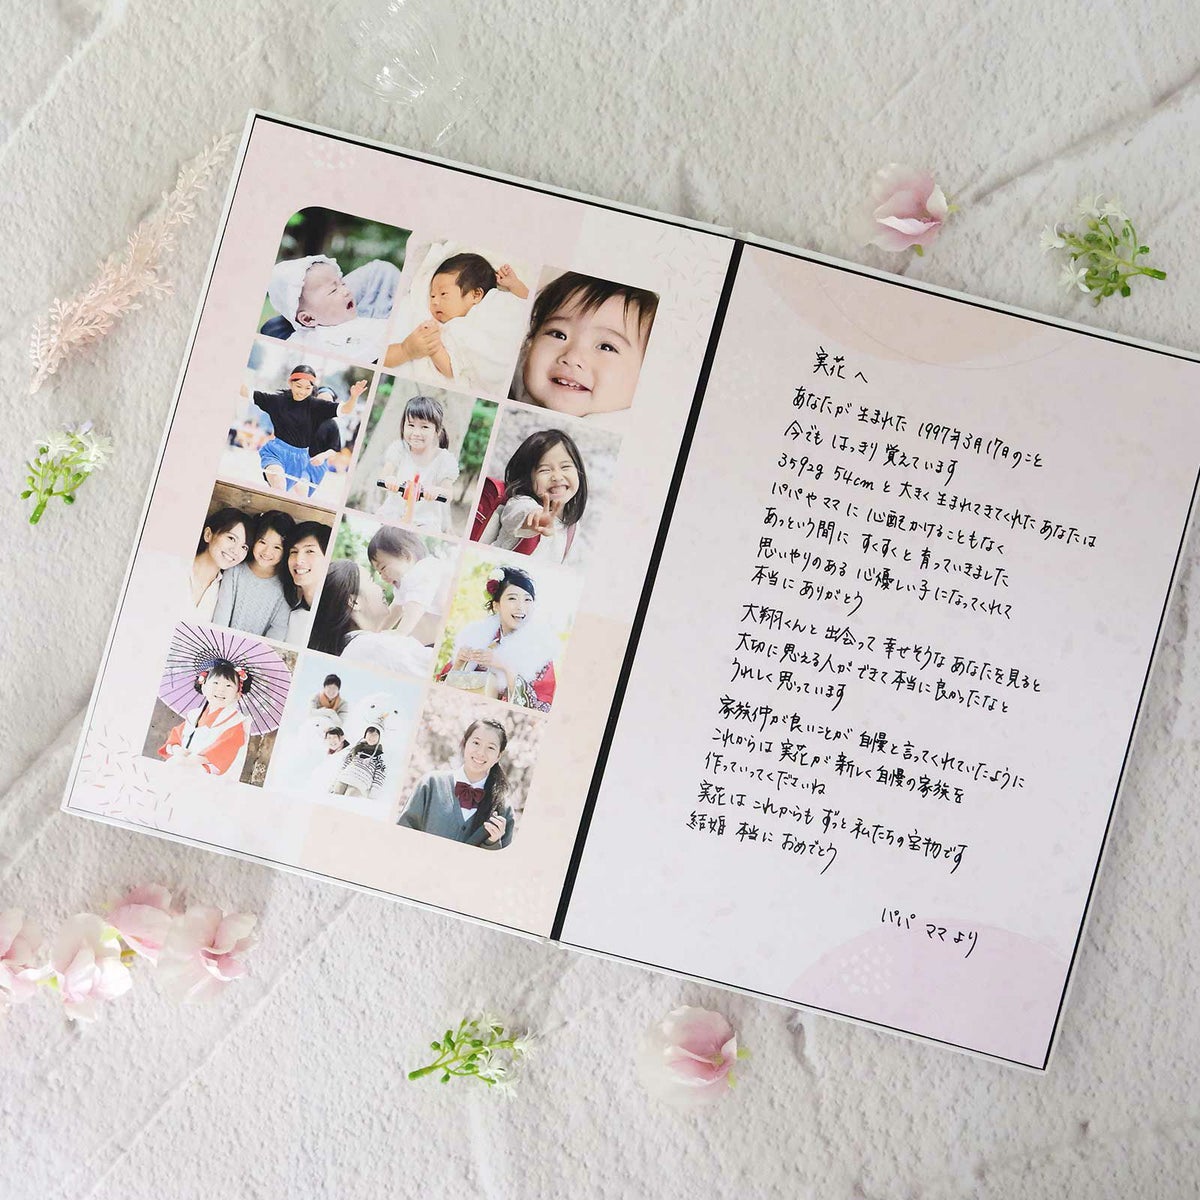 実花へ
あなたが生まれた 1997年3月17日のこと
今でも はっきり 覚えています
3592g 54cm と 大きく 生まれてきてくれた あなたは
パパや ママに 心配かけることもなく
あっという間に すくすくと 育っていきました
思いやりのある 心優しい子になってくれて
本当に ありがとう
大翔くんと 出会って 幸せそうな あなたを見ると
大切に思える人ができて 本当に良かったなと
うれしく 思っています
家族仲が良いことが 自慢と言ってくれていたように
これからは 実花が 新しく 自慢の家族を
作っていってくださいね
実花は これからも ずっと 私たちの宝物です
結婚 本当に おめでとう
パパ ママより